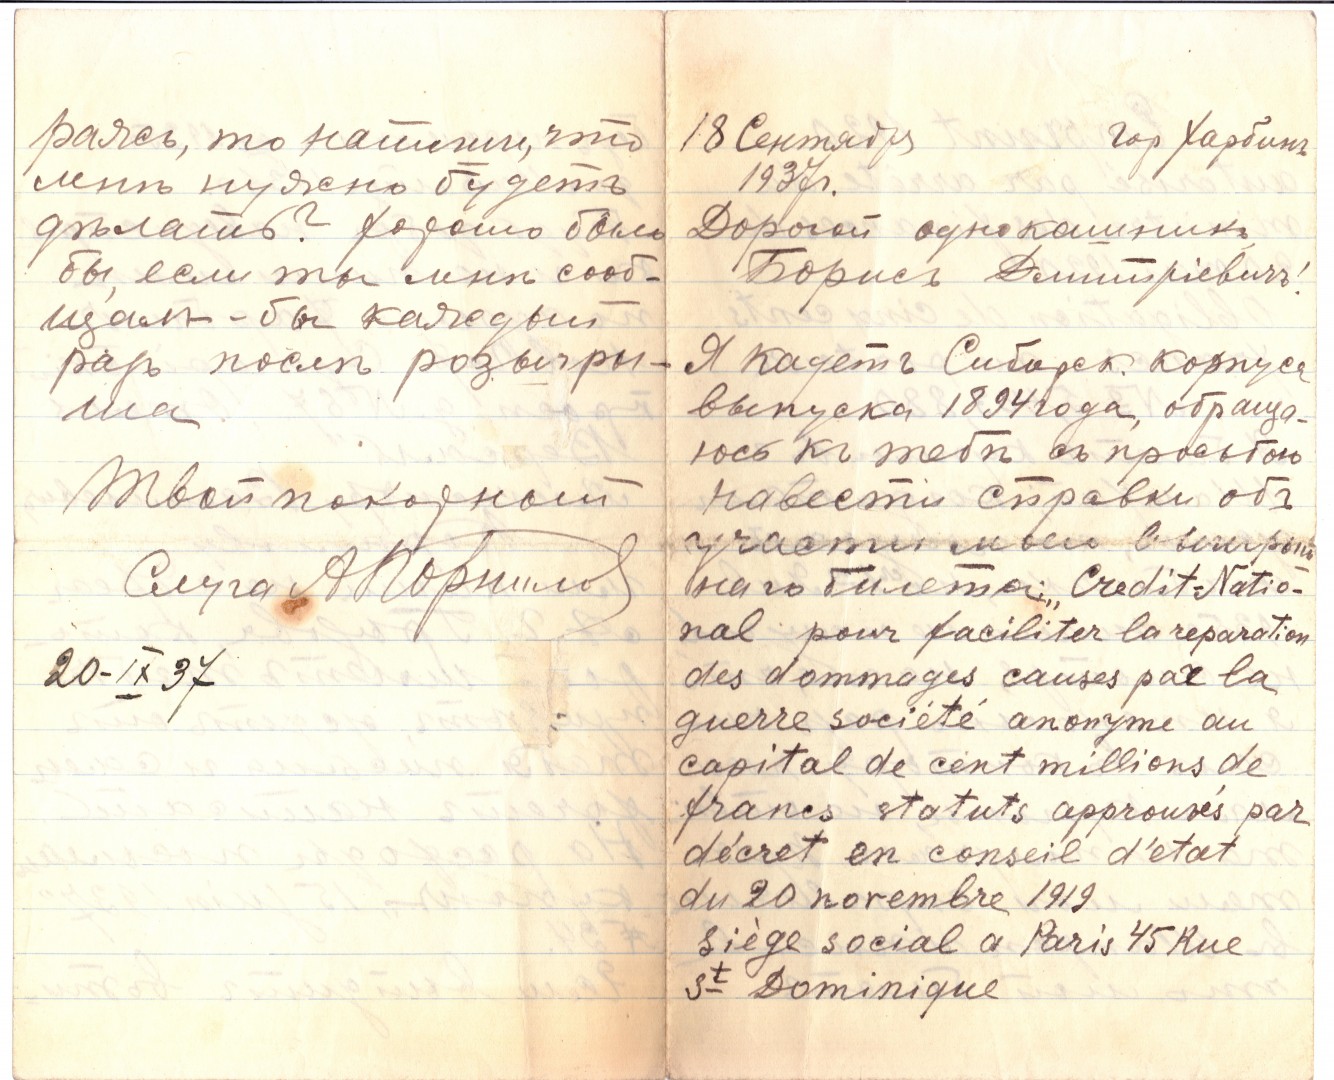 18 Сентября гор Харбинъ
1937г.
Дорогой однокашникъ
Борисъ Дмитріевичъ!
Я кадетъ Сибирск. корпуса
выпуска 1894 года, обраща-
юсь къ тебѣ съ просьбою
навести справки объ
участи моего выигрыш
наго билета: „Credit-Natio-
nal pour faciliter la reparation
des dommages causes par la
guerre société anonyme au
capital de cent millions de
francs statuts approuvés par
décret en conseil d'etat
du 20 novembre 1919
siège social a Paris 45 Rue
St Dominique
раясь, то напиши, что
мнѣ нужно будетъ
дѣлать? Хорошо было
бы, если ты мнѣ сооб-
щалъ-бы каждый
разъ послѣ розыгры-
ша
Твой покорный
Слуга АКорнилов
20-IX 37